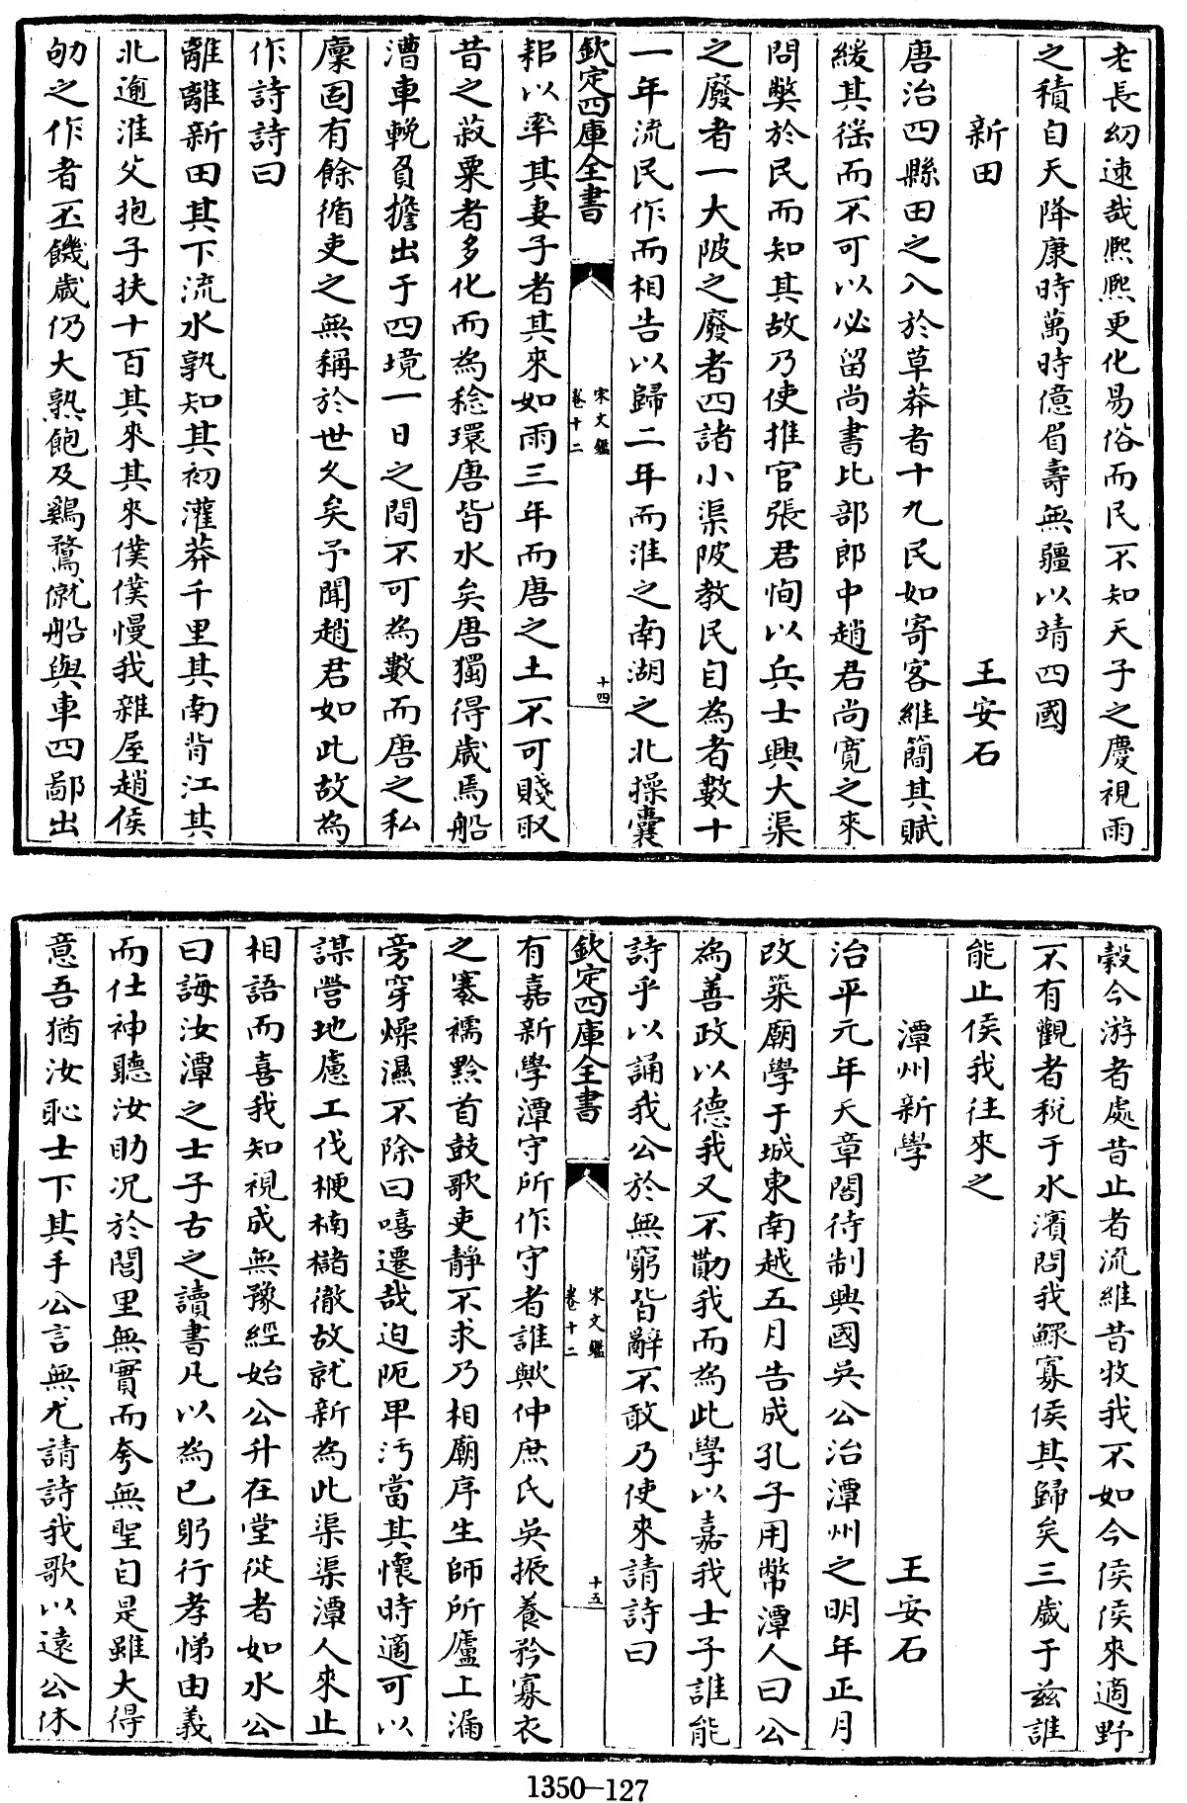 老長幼速哉熈熈更化易俗而民不知天子之慶視雨
之積自天降康時萬時億眉壽無疆以靖四國
新田 王安石
唐治四縣田之入於草莽者十九民如寄客維簡其賦
緩其徭而不可以必留尚書比部郎中趙君尚寛之來
問獘於民而知其故乃使推官張君恂以兵士興大渠
之廢者一大陂之廢者四諸小渠陂教民自為者數十
一年流民作而相告以歸二年而淮之南湖之北操囊
欽定四庫全書 宋文鑑 卷十二 十四
耜以率其妻子者其來如雨三年而唐之土不可賤取
昔之菽粟者多化而為稌環唐皆水矣唐獨得歳焉船
漕車輓負擔出于四境一日之間不可為數而唐之私
廩固有餘循吏之無稱於世久矣予聞趙君如此故為
作詩詩曰
離離新田其下流水孰知其初灌莽千里其南背江其
北逾淮父抱子扶十百其來其來僕僕慢我雜屋趙侯
劬之作者丕饑歳仍大熟飽及鷄鶩僦船與車四鄙出
穀今游者處昔止者流維昔牧我不如今侯侯來適野
不有觀者税于水濱問我鰥寡侯其歸矣三歳于兹誰
能止侯我往來之
潭州新學 王安石
治平元年天章閣待制興國吳公治潭州之明年正月
改築廟學于城東南越五月告成孔子用幣潭人曰公
為善政以德我又不勩我而為此學以嘉我士子誰能
詩乎以誦我公於無窮皆辭不敢乃使來請詩曰
欽定四庫全書 宋文鑑 卷十二 十五
有嘉新學潭守所作守者誰歟仲庶氏吳振養矜寡衣
之褰襦黔首鼓歌吏靜不求乃相廟序生師所廬上漏
旁穿燥濕不除曰嘻遷哉迫阨卑汚當其壞時適可以
謀營地慮工伐楩楠櫧徹故就新為此渠渠潭人來止
相語而喜我知視成無豫經始公升在堂從者如水公
曰誨汝潭之士子古之讀書凡以為已躬行孝悌由義
而仕神聽汝助况於閭里無實而夸無聖自是雖大得
意吾猶汝恥士下其手公言無尤請詩我歌以遠公休
1350-127